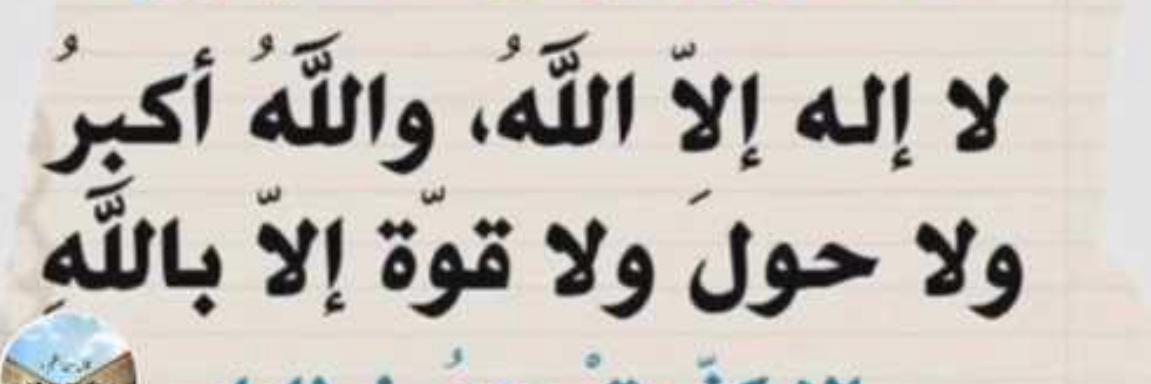 لا إله إلاّ اللَّهُ، واللَّهُ أكبرُ
ولا حولَ ولا قوّة إلاّ باللَّهِ